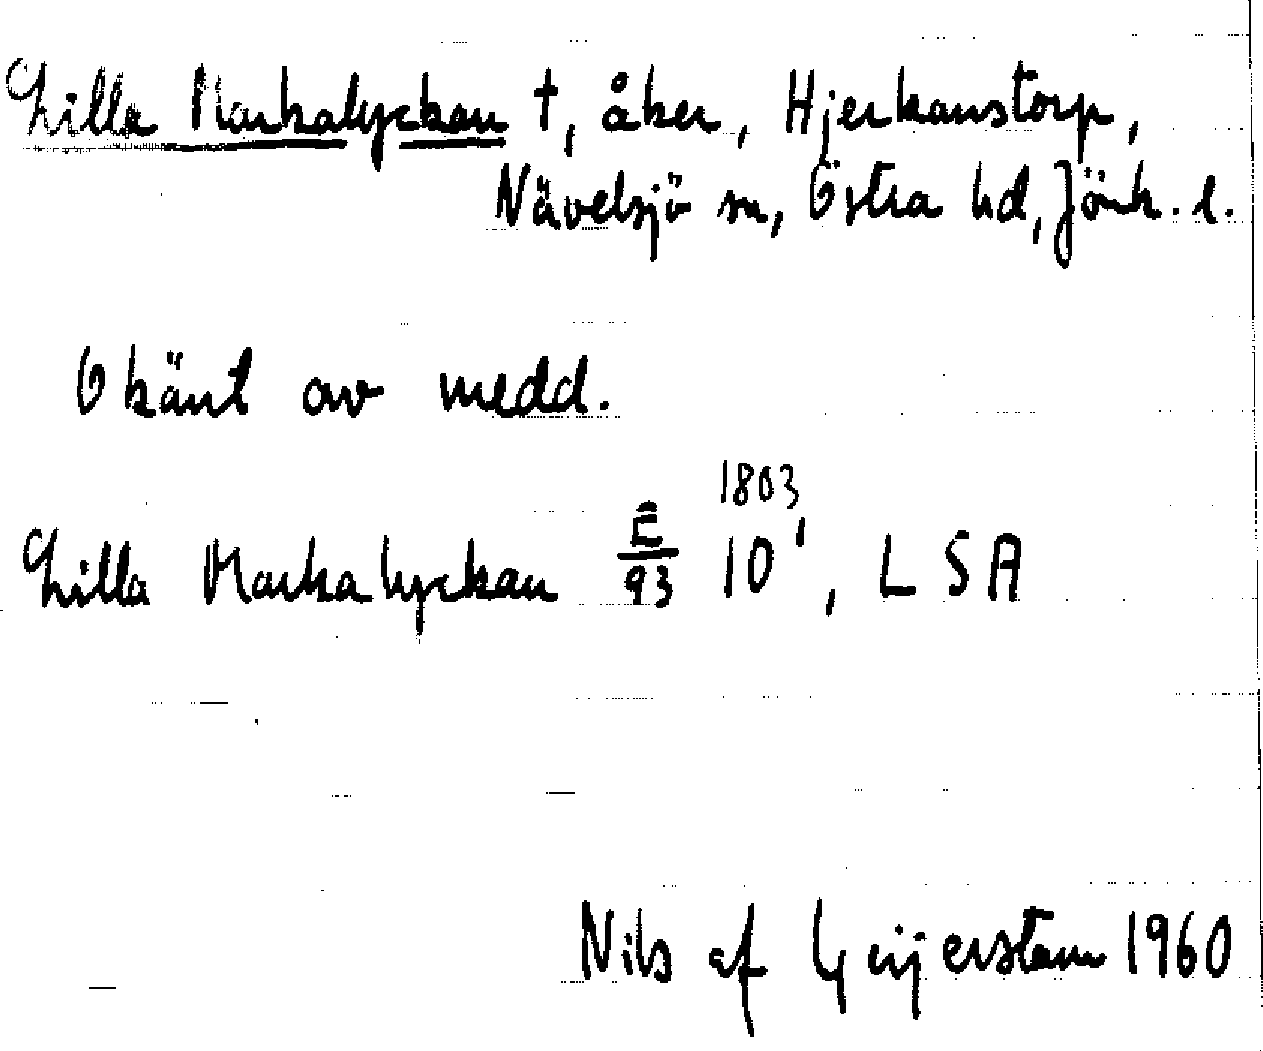 Lilla Markalyckan †, åker, Hjerkanstorp,
Nävelsjö sn, Östra hd, Jönk. l.
Okänt av medd.
Lilla Markalyckan Ê/93 10¹, LSA
1803
Nils af Geijerstam 1960